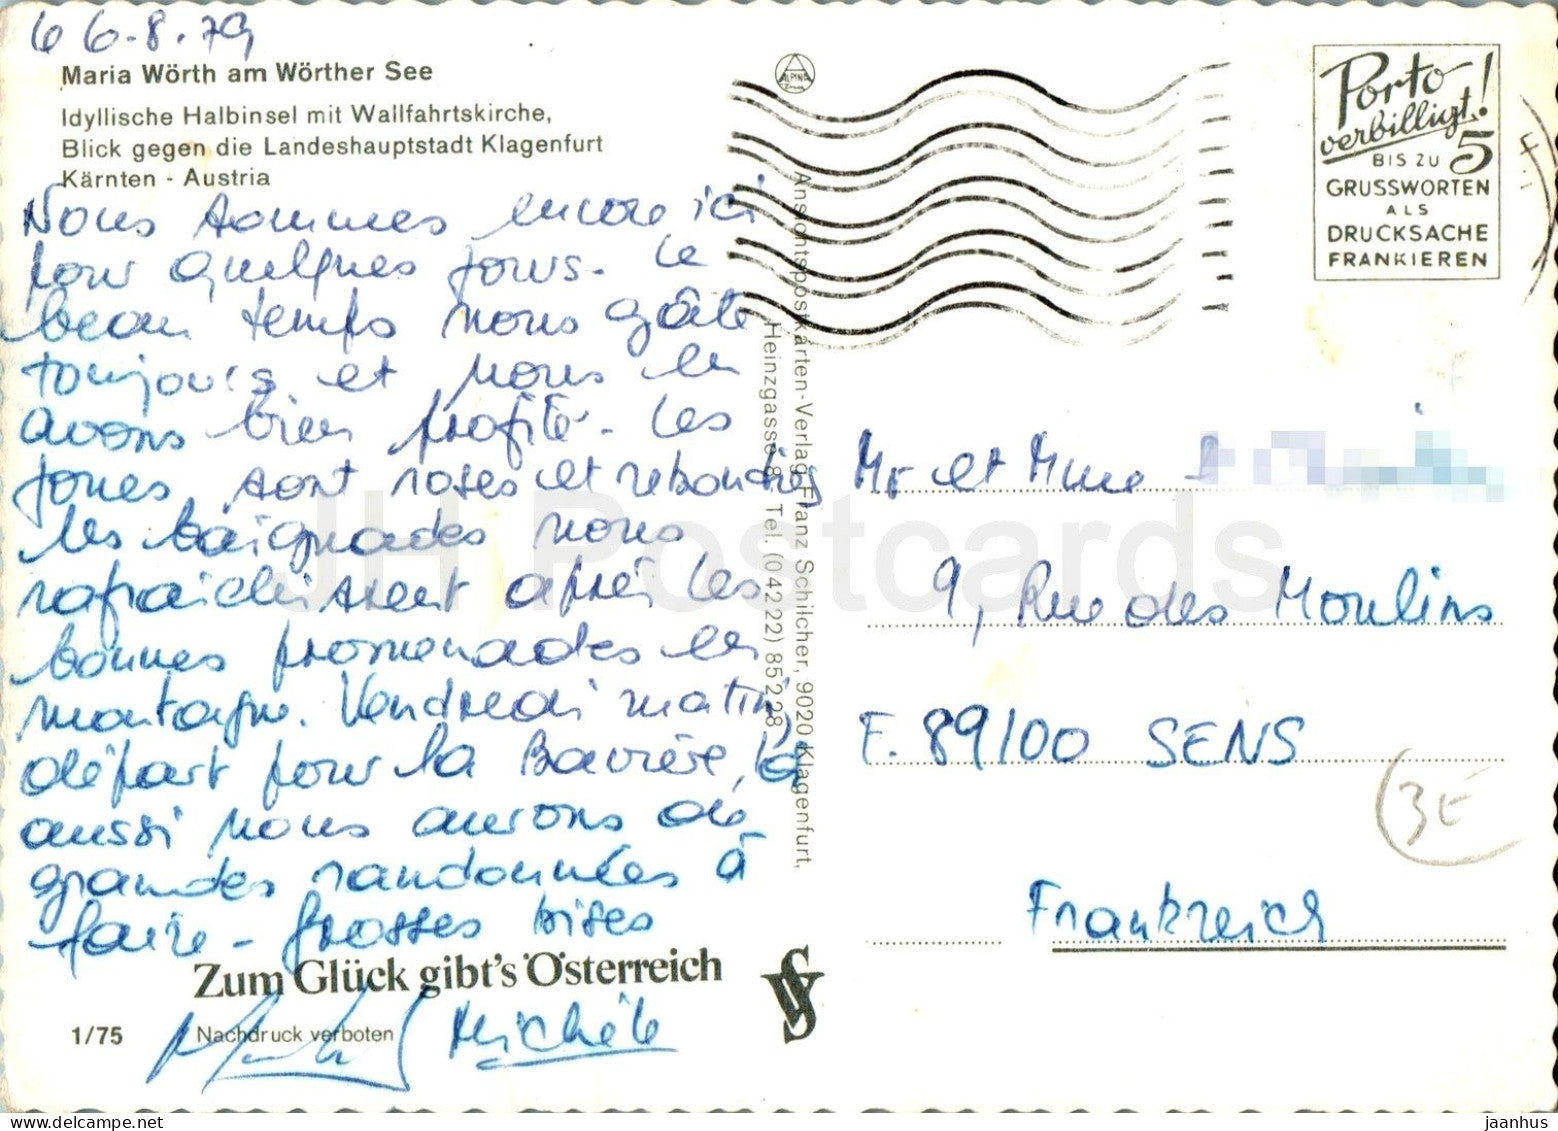 6 6.8.79
Maria Wörth am Wörther See
Idyllische Halbinsel mit Wallfahrtskirche,
Blick gegen die Landeshauptstadt Klagenfurt
Kärnten - Austria
Nous sommes encore ici
pour quelques jours. Le
beau temps nous gâte
toujours et nous en
avons bien profité. Les
joues sont roses et rebondies
les baignades nous
rafraichissent après les
bonnes promenades en
montagne. Vendredi matin,
départ pour la Bavière, là
aussi nous aurons de
grandes randonnées à
faire - grosses bises
Zum Glück gibt's Österreich
1/75
Nachdruck verboten
Michèle
ALPINA
Ansichtspostkarten-Verlag Franz Schilcher, 9020 Klagenfurt,
Heinzgasse 8, Tel. (0 42 22) 85 2 28
Porto
verbilligt!
BIS ZU 5
GRUSSWORTEN
ALS
DRUCKSACHE
FRANKIEREN
Mr et Mme
9, Rue des Moulins
F. 89100 SENS
3E
Frankreich
SVV
JH Postcards
www.delcampe.net
jaanhus